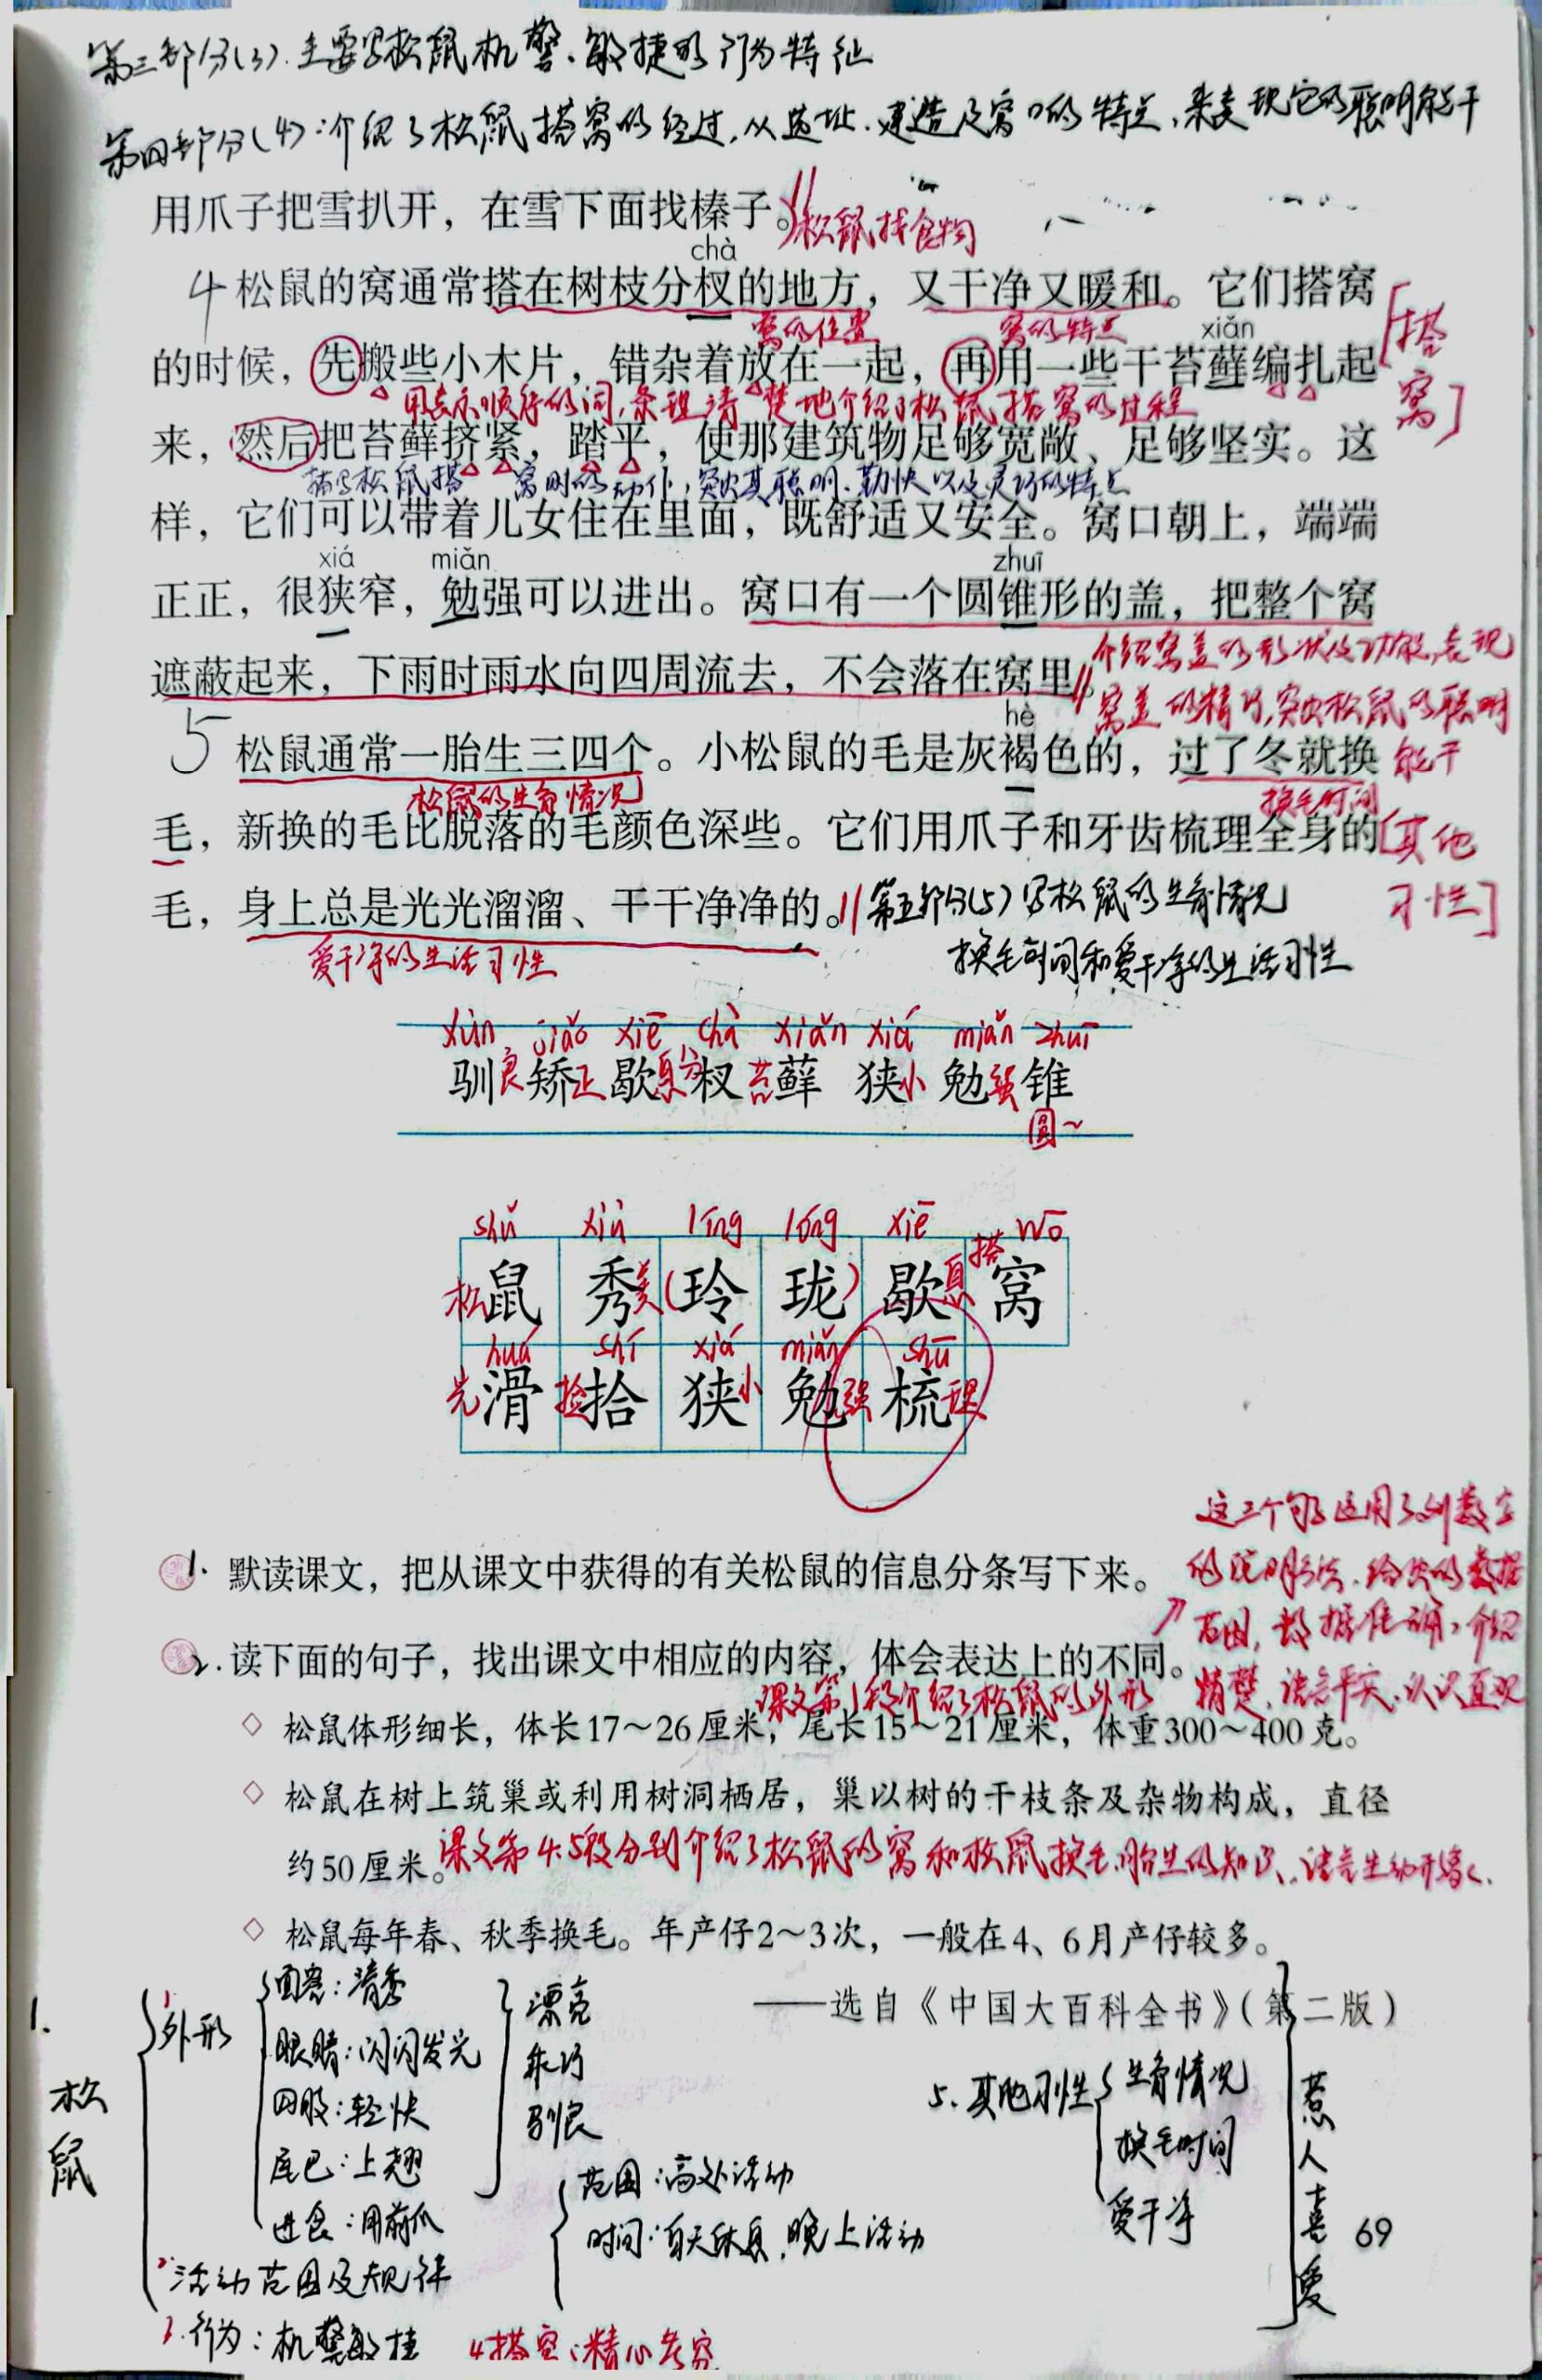 第三部分(3).主要写松鼠机警、敏捷的行为特征
第四部分(4):介绍了松鼠搭窝的经过,从选址、建造及窝口的特点,来表现它的聪明能干
用爪子把雪扒开，在雪下面找榛子。
松鼠找食物
chà
4 松鼠的窝通常搭在树枝分杈的地方，又干净又暖和。它们搭窝
窝的位置 窝的特点 xiǎn
[搭窝]
的时候，先搬些小木片，错杂着放在一起，再用一些干苔藓编扎起
用表示顺序的词,条理清楚地介绍了松鼠搭窝的过程
来，然后把苔藓挤紧，踏平，使那建筑物足够宽敞、足够坚实。这
描写松鼠搭窝时的动作,突出其聪明、勤快以及灵巧的特点
样，它们可以带着儿女住在里面，既舒适又安全。窝口朝上，端端
xiá miǎn zhuī
正正，很狭窄，勉强可以进出。窝口有一个圆锥形的盖，把整个窝
遮蔽起来，下雨时雨水向四周流去，不会落在窝里。
介绍窝盖的形状及功能,表现
窝盖的精巧,突出松鼠的聪明
能干
hè
5 松鼠通常一胎生三四个。小松鼠的毛是灰褐色的，过了冬就换
松鼠的生育情况 换毛时间
毛，新换的毛比脱落的毛颜色深些。它们用爪子和牙齿梳理全身的
[其他
习性]
毛，身上总是光光溜溜、干干净净的。
第五部分(5)写松鼠的生育情况
换毛时间和爱干净的生活习性
爱干净的生活习性
xùn jiǎo xiē chà xiǎn xiá miǎn zhuī
驯良矫正歇息分杈苔藓 狭小 勉强锥
圆~
shǔ xiù líng lóng xiē wō
松鼠 秀美(玲 珑)歇息搭窝
huá shí xiá miǎn shū
光滑 捡拾 狭小 勉强 梳理
这三个句子运用了列数字
的说明方法.给出的数据
范围,数据准确,介绍
清楚,语言平实,认识直观
1. 默读课文，把从课文中获得的有关松鼠的信息分条写下来。
2. 读下面的句子，找出课文中相应的内容，体会表达上的不同。
课文第1段介绍了松鼠的外形
◇ 松鼠体形细长，体长17～26厘米，尾长15～21厘米，体重300～400克。
◇ 松鼠在树上筑巢或利用树洞栖居，巢以树的干枝条及杂物构成，直径
约50厘米。
课文第4.5段分别介绍了松鼠的窝和松鼠换毛、胎生的知识、语言生动形象.
◇ 松鼠每年春、秋季换毛。年产仔2～3次，一般在4、6月产仔较多。
——选自《中国大百科全书》（第二版）
1.
松鼠
1外形
面容:清秀
眼睛:闪闪发光
四肢:轻快
尾巴:上翘
进食:用前爪
漂亮
乖巧
驯良
2.活动范围及规律
范围:高处活动
时间:白天休息,晚上活动
3.行为:机警敏捷
4搭窝:精心考究
5.其他习性
生育情况
换毛时间
爱干净
惹人喜爱
69